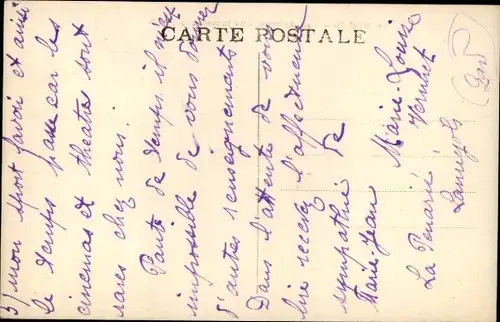 CARTE POSTALE
5) mon sport favori et aussi
le temps passe car les
cinémas et theatres sont
rares chez nous.
Faute de temps il m'est
impossible de vous donner
d'autres renseignements
Dans l'attente de vous
lire recevez l'affectueuse
sympathie de
Marie-Jean
Marie-Louise
La